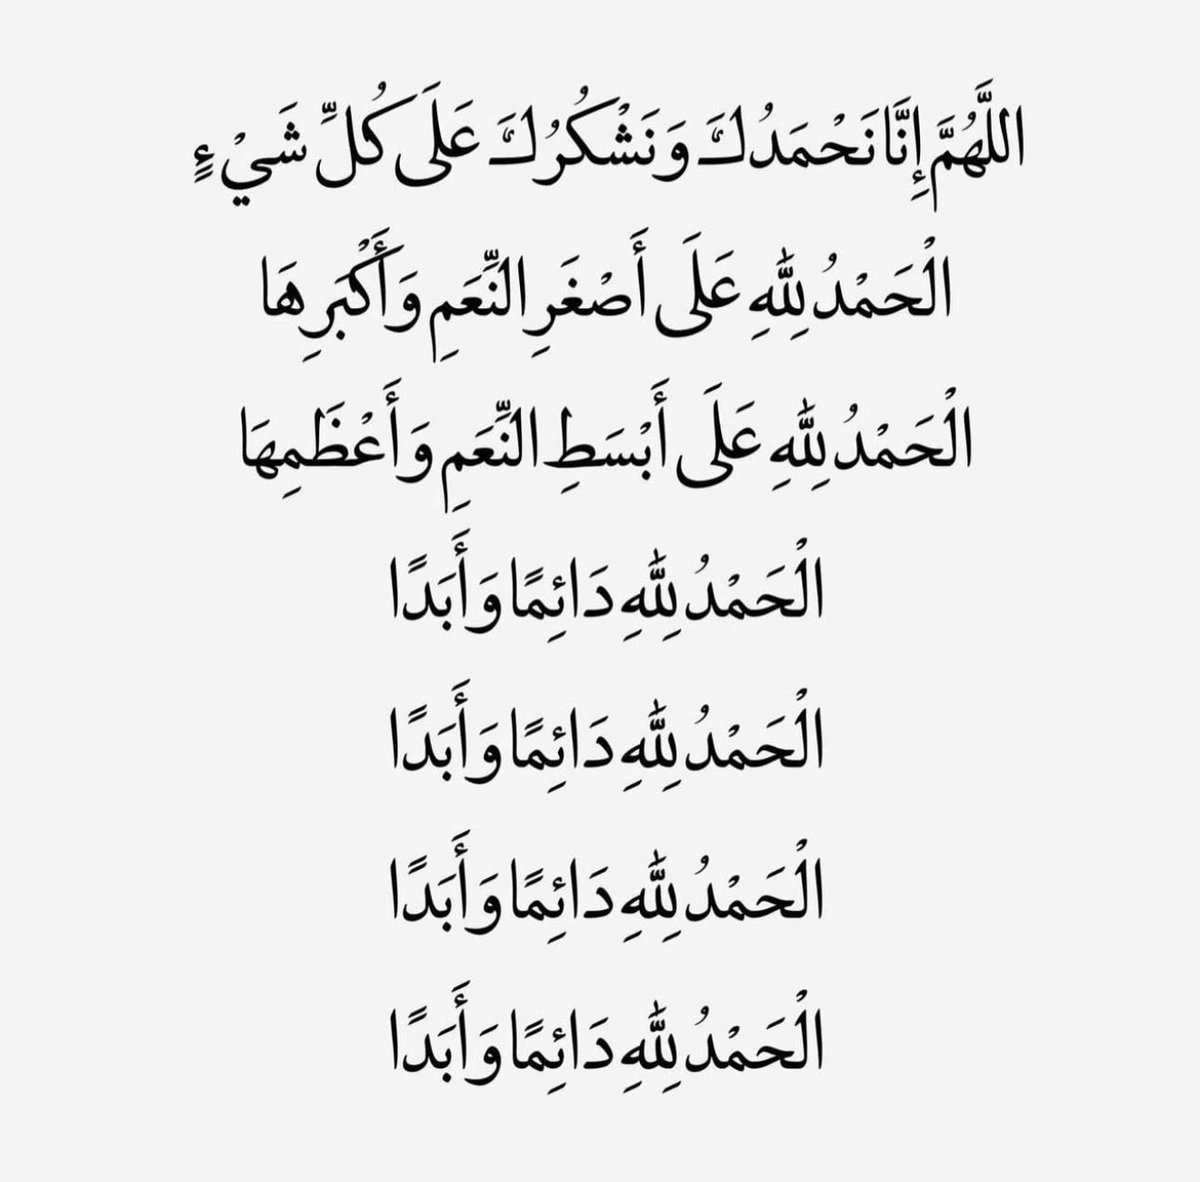 اللَّهُمَّ إِنَّا نَحْمَدُكَ وَنَشْكُرُكَ عَلَى كُلِّ شَيْءٍ
الْحَمْدُ لِلَّهِ عَلَى أَصْغَرِ النِّعَمِ وَأَكْبَرِهَا
الْحَمْدُ لِلَّهِ عَلَى أَبْسَطِ النِّعَمِ وَأَعْظَمِهَا
الْحَمْدُ لِلَّهِ دَائِمًا وَأَبَدًا
الْحَمْدُ لِلَّهِ دَائِمًا وَأَبَدًا
الْحَمْدُ لِلَّهِ دَائِمًا وَأَبَدًا
الْحَمْدُ لِلَّهِ دَائِمًا وَأَبَدًا